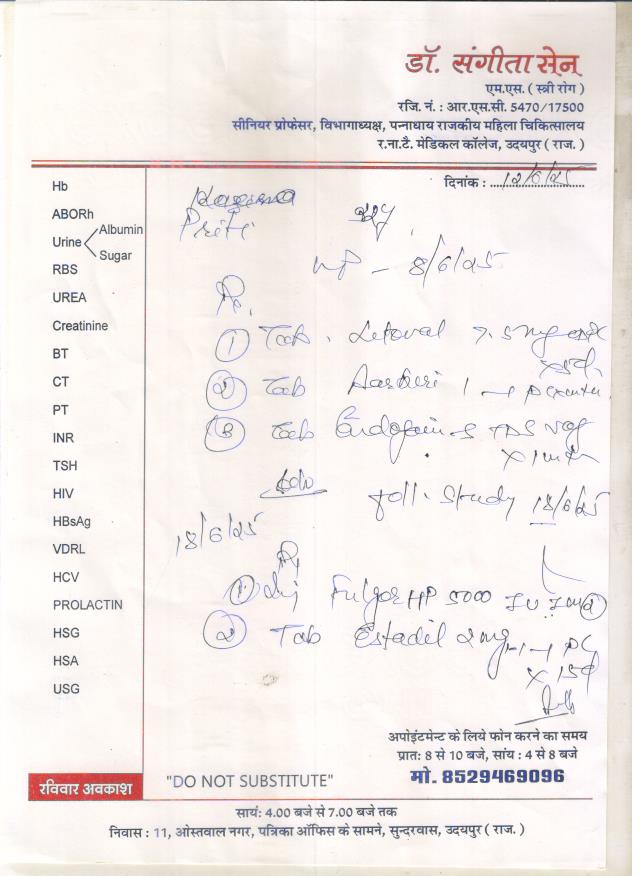 डॉ. संगीता सेन
एम.एस. ( स्त्री रोग )
रजि. नं. : आर.एस.सी. 5470/17500
सीनियर प्रोफेसर, विभागाध्यक्ष, पन्नाधाय राजकीय महिला चिकित्सालय
र.ना.टै. मेडिकल कॉलेज, उदयपुर ( राज. )
दिनांक : 12/6/25
Hb
ABORh
Urine Albumin
Sugar
RBS
UREA
Creatinine
BT
CT
PT
INR
TSH
HIV
HBsAg
VDRL
HCV
PROLACTIN
HSG
HSA
USG
Priti
LMP - 8/6/25
Rx
① Tab. Letoval
② Tab
③ Tab TDS
x 1 mth
Adv Foll. Study 18/6/25
18/6/25
Rx
① Inj Fulgor HP 5000 IU
② Tab Estadil 2 mg
x 15d
अपोइंटमेन्ट के लिये फोन करने का समय
प्रात: 8 से 10 बजे, सांय : 4 से 8 बजे
मो. 8529469096
रविवार अवकाश
"DO NOT SUBSTITUTE"
सायं: 4.00 बजे से 7.00 बजे तक
निवास : 11, ओस्तवाल नगर, पत्रिका ऑफिस के सामने, सुन्दरवास, उदयपुर ( राज. )